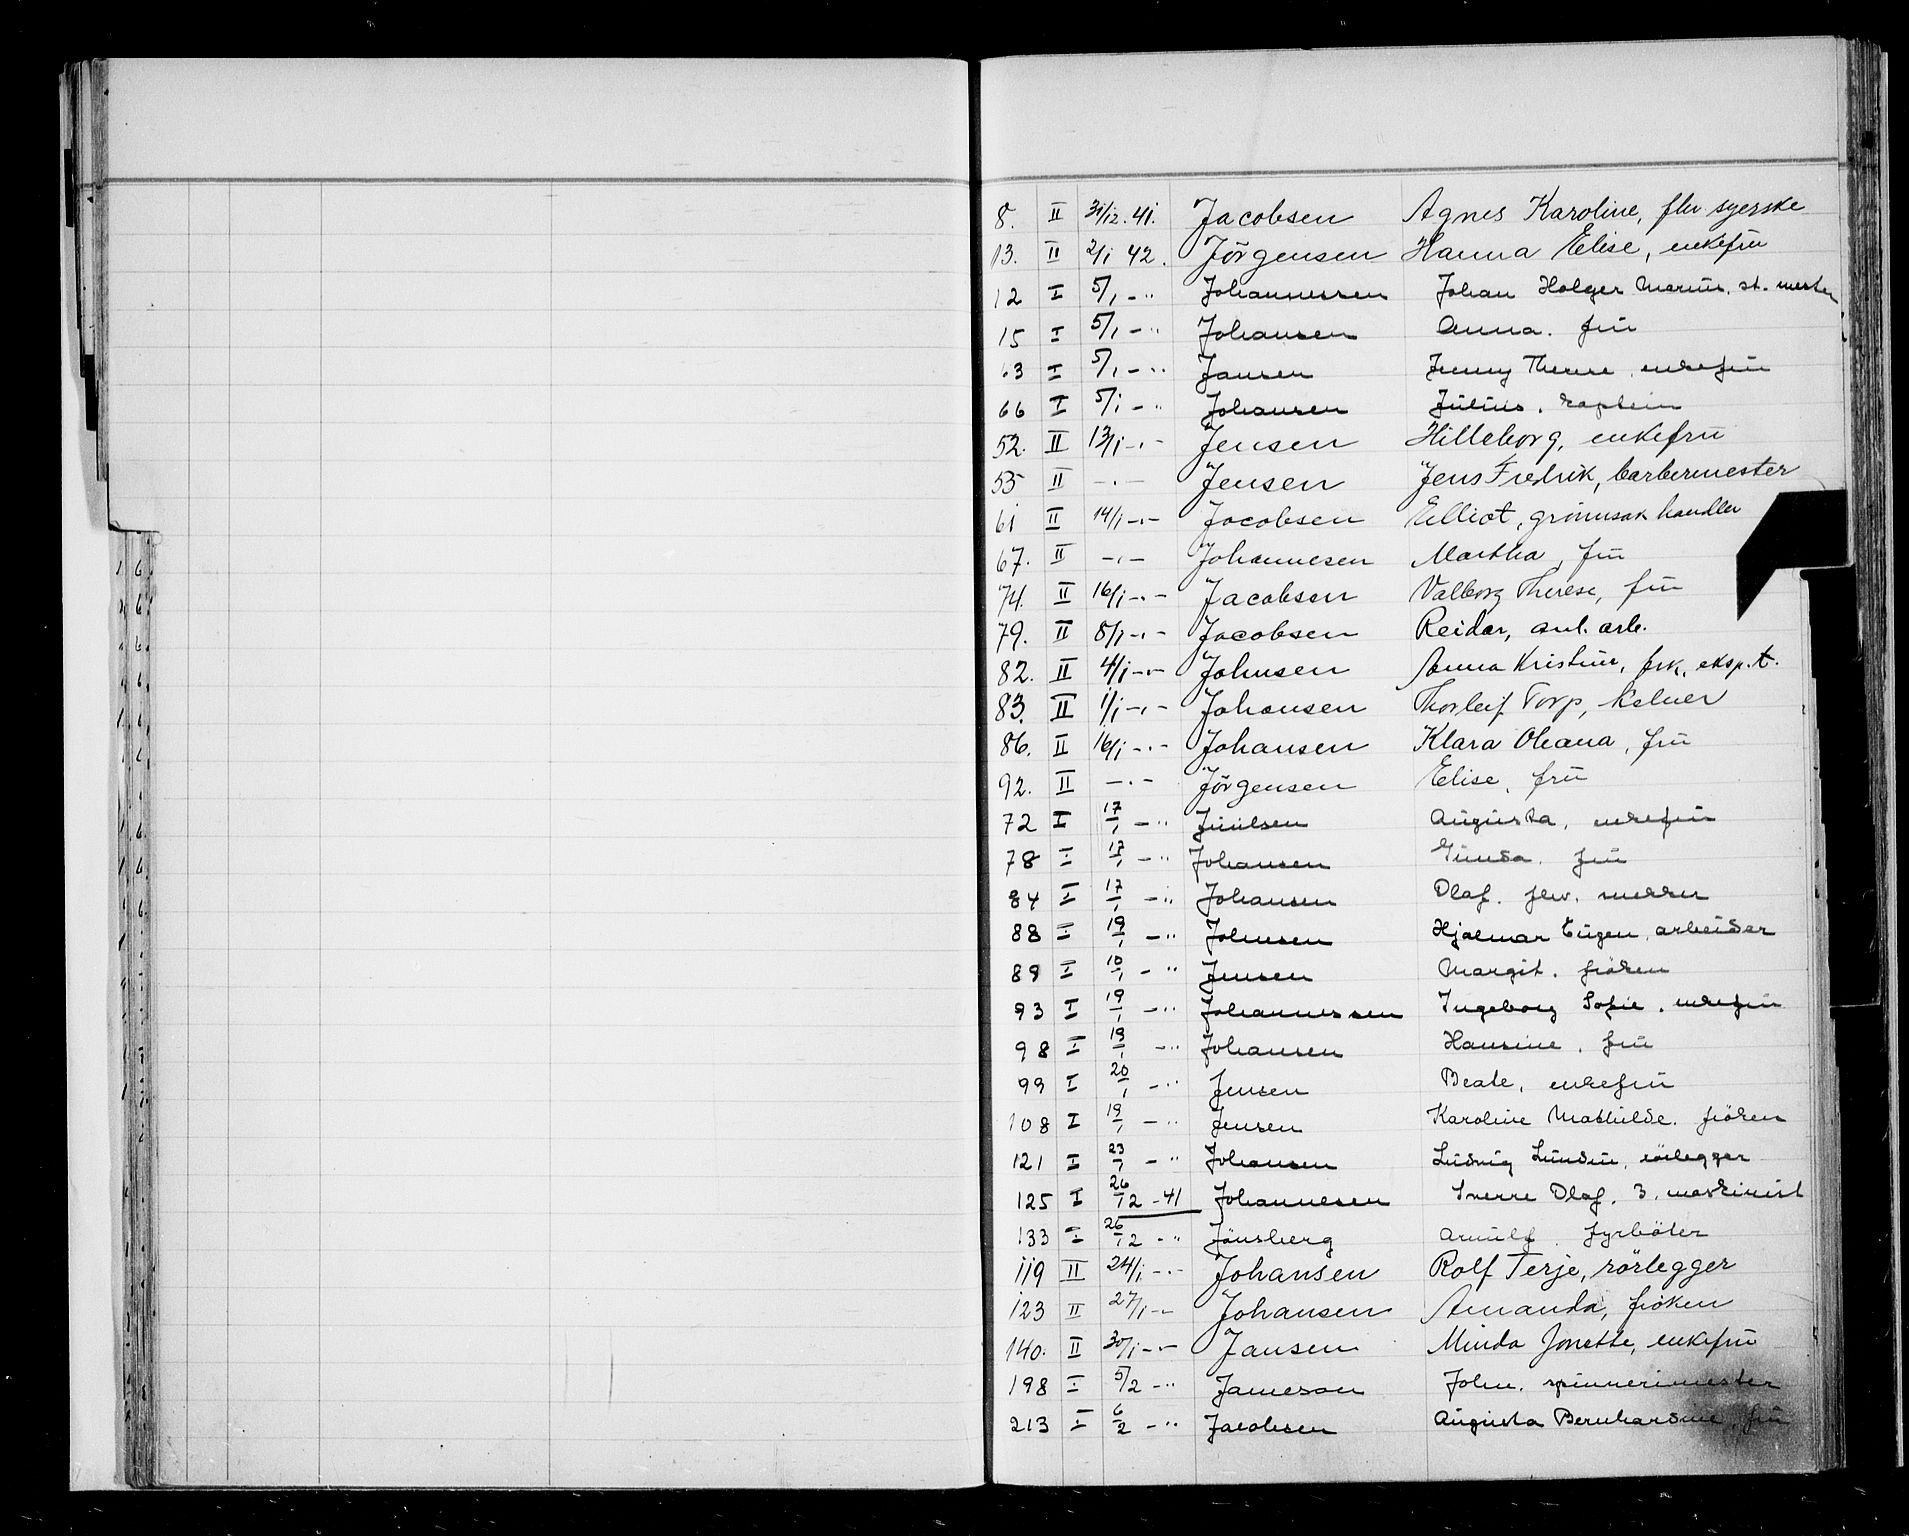 8. II 31/12. 41. Jacobsen Agnes Karoline, fhv syerske
13. II 2/1 42. Jörgensen Hanna Elise, enkefrü
12 I 5/1 - " Johannessen Johan Holger Marius. st. mester
15 I 5/1 - " Johansen Anna. frü
63 I 5/1 - " Jansen Jenny Therese, enkefrü
66 I 5/1 - " Johansen Jülius, kaptein
52. II 13/1 -.- Jensen Hilleborg, enkefrü
55 II -.- Jensen Jens Fredrik, barbermester
61 II 14/1 -.- Jacobsen Elliot, grönnsak handler
67. II -.- Johannesen Martha, frü
74. II 16/1 -.- Jacobsen Valborg Therese, frü
79. II 8/1 -.- Jacobsen Reidar, anl. arb.
82. II 4/1 -.- Johnsen Anna Kristine, frk. eksp.t.
83. II 1/1 -.- Johansen Thorleif Torp, kelner
86. II 16/1 -.- Johansen Klara Oleana, frü
92. II -.- Jörgensen Elise, frü
72 I 17/1 - " Jüülsen Aügüsta, enkefrü
78 I 17/1 - " Johansen Günda. frü
84 I 17/1 - " Johansen Olaf. fhv. snekker
88 I 19/1 - " Johnsen Hjalmar Eügen, arbeider
89 I 10/1 - " Jensen Margit. fröken
93 I 19/1 - " Johannessen Ingeborg Sofie. enkefrü
98 I 19/1 - " Johansen Hansine, frü
99 I 20/1 - " Jensen Beate, enkefrü
108 I 19/1 - " Jensen Karoline Mathilde. fröken
121 I 23/1 - " Johansen Lüdvig Lündin, rörlegger
125 I 26/12 - 41 Johannesen Sverre Olaf. 3. maskinist
133 I 26/12 - " Jönsberg Arnülf. Fyrböter
119 II 24/1 -.- Johansen Rolf Terje, rörlegger
123 II 27/1 -.- Johansen Amanda, fröken
140. II 30/1 -.- Jansen Minda Jonette, enkefrü
198 I 5/2 - " Jameson John. spinnerimester
213 I 6/2 - " Jacobsen Aügüsta Bernhardine, frü